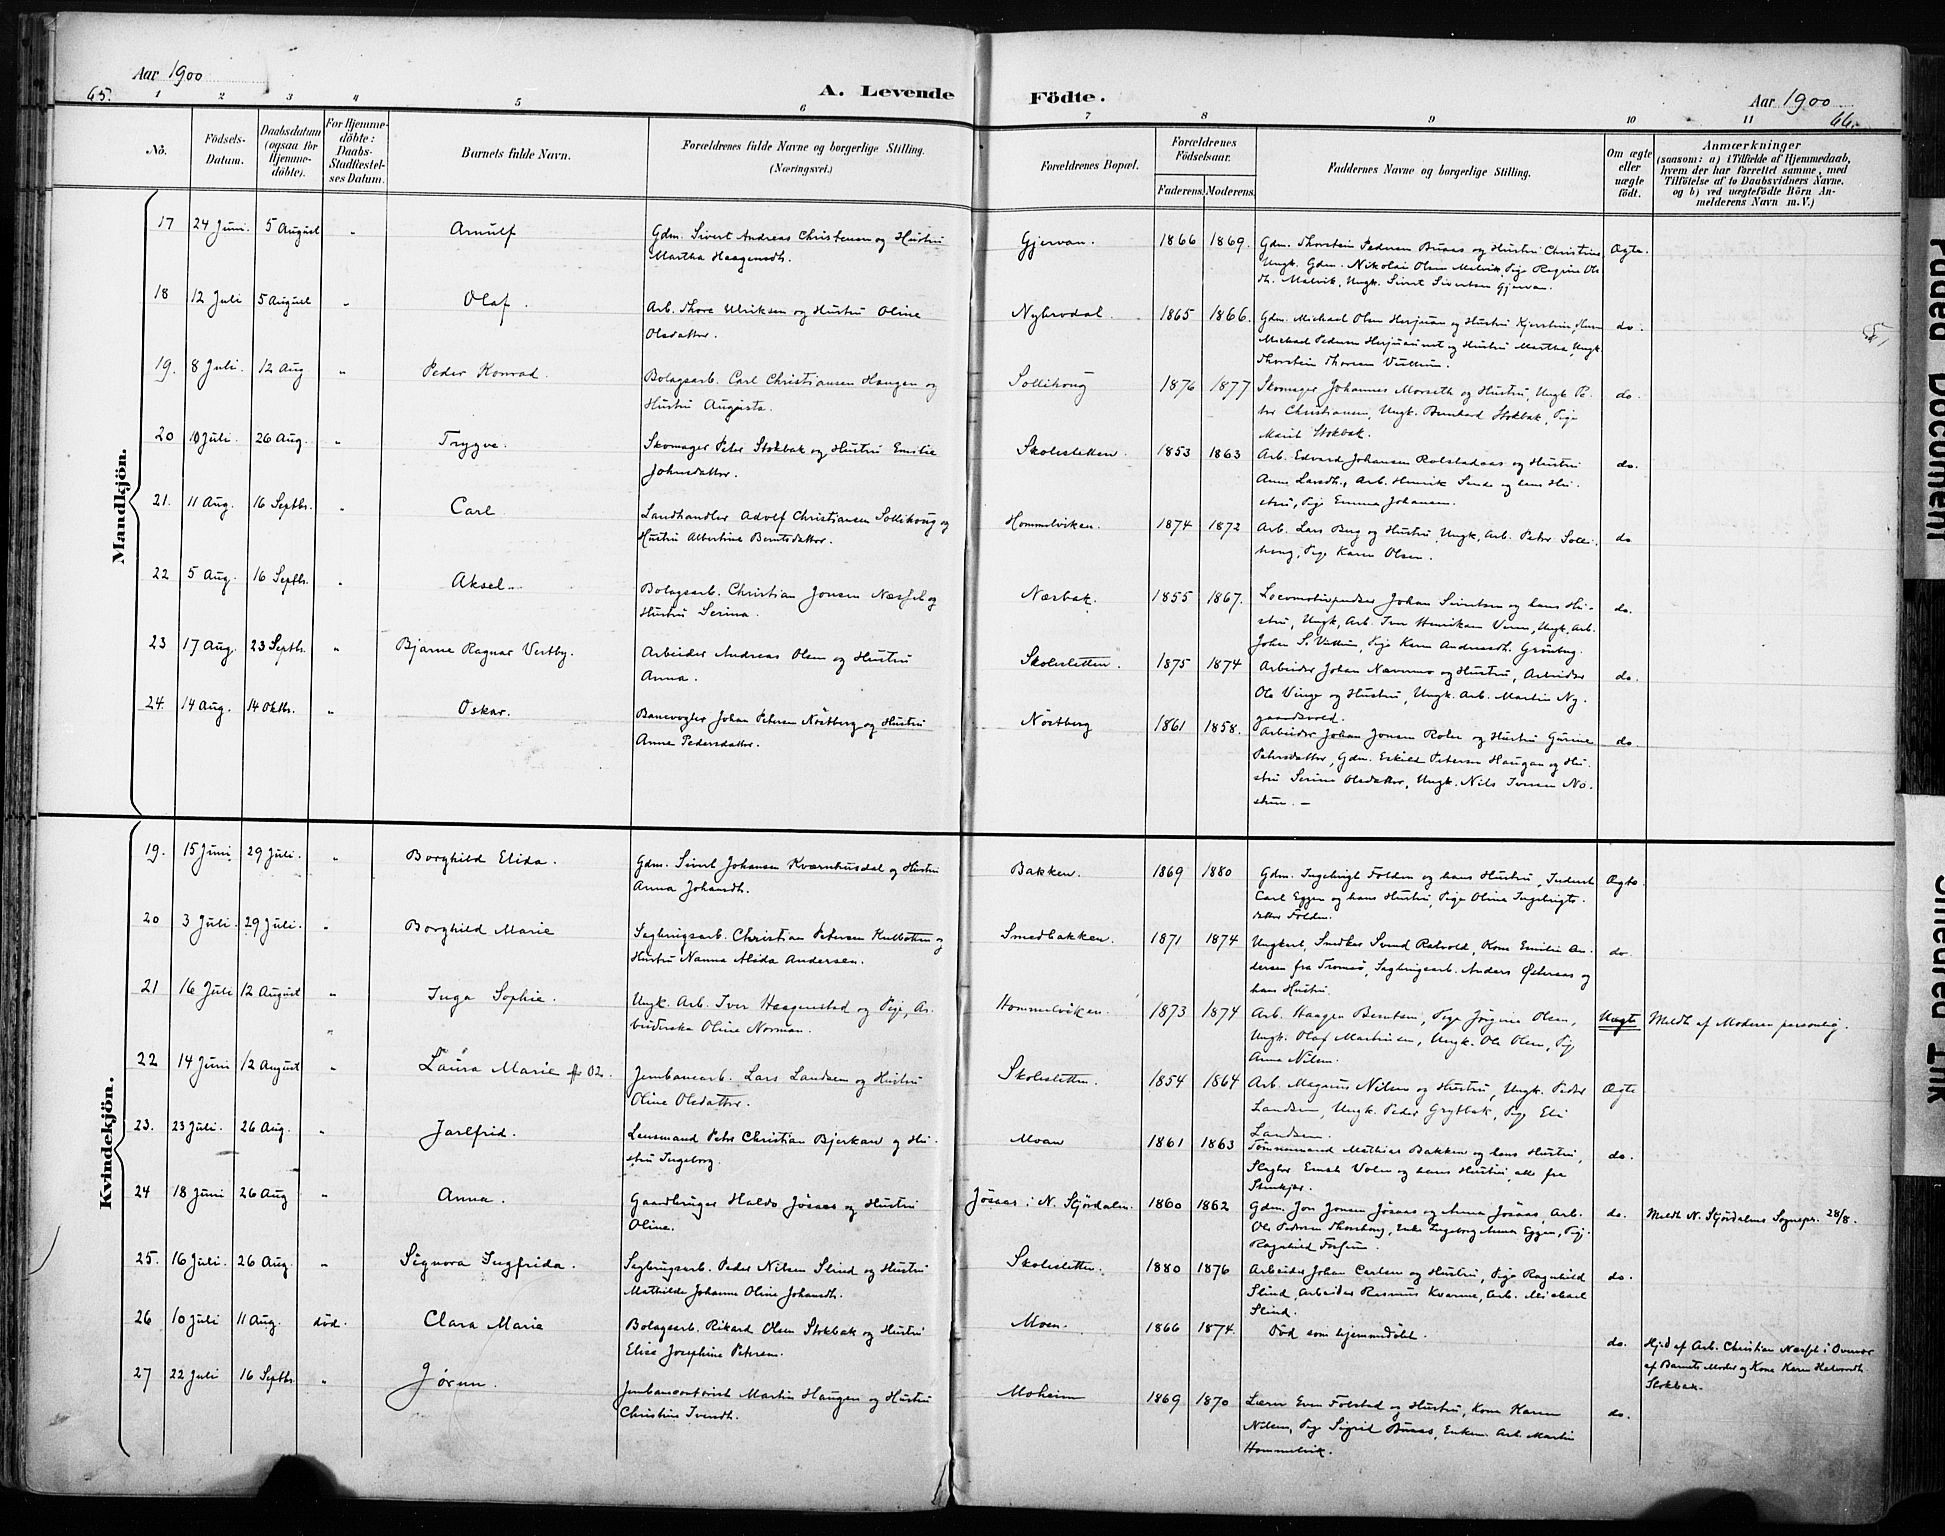 Aar 1900
65.
A. Levende Födte.
Aar 1900
66.
1 2 3 4 5 6 7 8 9 10 11
No.
Födsels-
Datum.
Daabsdatum
(ogsaa for
Hjemme-
döbte).
For Hjemme-
döbte:
Daabs-
Stadfæstel-
ses Datum.
Barnets fulde Navn.
Forældrenes fulde Navne og borgerlige Stilling.
(Næringsvei.)
Forældrenes Bopæl.
Forældrenes
Födselsaar.
Faderens. Moderens.
Faddernes Navne og borgerlige Stilling.
Om ægte
eller
uægte
födt.
Anmærkninger
(saasom: a) i Tilfælde af Hjemmedaab,
hvem der har forrettet samme, med
Tilföielse af to Daabsvidners Navne,
og b) ved uægtefödte Börn An-
melderens Navn m. V.)
Mandkjön.
17 24 Juni. 5 August " Arnulf
Gdm. Sivert Andreas Christensen og Hustru
Martha Haagensdt.
Gjervan. 1866 1869.
Gdm. Thorstein Pedersen Buaas og Hustru Christine
Ungk. Gdm. Nikolai Olsen Malvik, Pige Regine Ols
dt. Malvik, Ungk. Sivert Sivertsen Gjervan.
Ægte.
18 12 Juli 5 August " Olaf
Arb. Thore Ulriksen og Hustru Oline
Olsdatter.
Nybrodal. 1865 1866.
Gdm. Michael Olsen Herjuan og Hustru Kjerstine,
Michael Pedersen og Hustru Martha, Ungk.
Thorstein Thorsen Vullum.
do.
19. 8 Juli. 12 Aug " Peder Konrad.
Bolagsarb. Carl Christiansen Haugen og
Hustru Augusta.
Sollihoug 1876 1877
Skomager Johannes Morseth og Hustru, Ungk. Pe-
ter Christiansen, Ungk. Bernhard Stokbak, Pige
Marit Stokbak.
do.
20 10 Juli. 26 Aug. " Trygve.
Skomager Peter Stokbak og Hustru Emilie
Johnsdatter.
Skoleslетten. 1853 1863
Arb. Edvard Johansen Rolstadaas og Hustru
Anne Larsdt., Arb. Henrik og hans Hu-
stru, Pige Emma Johansen.
do.
21. 11 Aug. 16 Septbr. " Carl.
Landhandler Adolf Christiansen Sollihoug og
Hustru Albertine Berntsdatter.
Hommelviken. 1874 1872
Arb. Lars Berg og Hustru, Ungk. Arb. Peter Solli-
houg, Pige Karen Olsen.
do
22 5 Aug. 16 Septbr. " Aksel.
Bolagsarb. Christian Jonsen Næsfel og
Hustru Serina.
Næsbak. 1855 1867.
Locomotivpudser Johan Sivertsen og hans Hu-
stru, Ungk. Arb. Iver Henriksen Viven, Ungk. Arb.
Johan S. Vullum, Pige Karen Andreasdt. Grönberg.
do.
23 17 Aug. 23 Septbr. " Bjarne Ragnar Vestby.
Arbeider Andreas Olsen og Hustru
Anna.
Skolesletten. 1875 1874
Arbeider Johan Næverno og Hustru, Arbeider
Ole Vinge og Hustru, Ungk. Arb. Martin Ny-
gaardsvold.
do.
24. 14 Aug. 14 Oktbr. " Oskar.
Banevogter Johan Petersen Nöstberg og Hustru
Anne Pedersdatter.
Nöstberg 1861 1858.
Arbeider Johan Jonsen Roler og Hustru Gurine
Petersdatter, Gdm. Eskild Petersen Haugan og Hu-
stru Serine Olsdatter, Ungk. Nils Iversen No-
strun. —
do.
Kvindekjön.
19. 15 Juni. 29 Juli. " Borghild Elida.
Gdm. Sivert Johansen Kværnhusdal og Hustru
Anna Johansdt.
Bakken. 1869 1880
Gdm. Ingebrigt Folden og hans Hustru, Inderst
Carl Eggen og hans Hustru, Pige Olina Ingebrigts-
datter Folden.
Ægte.
20 3 Juli. 29 Juli. " Borghild Marie
Sagbrugsarb. Christian Petersen Kulbotten og
Hustru Nanna Alida Andersen.
Smedbakken. 1871 1874
Ungkarl, Smed Svend Ratvold, Kone Emilie An-
dersen fra Tromsö, Sagbrugsarb. Anders Østeraas og
hans Hustru.
do
21 16 Juli 12 August " Inga Sophie.
Ungk. Arb. Iver Haagenstad og Pige, Ar-
beiderske Oline Norman.
Hommelviken. 1873 1874
Arb. Haagen Berntsen, Pige Jörgine Olsen,
Ungk. Olaf Martinsen, Ungk. Ole Olsen, Pige
Anna Nilsen.
Uægte
Meldt af Moderen personlig.
22 14 Juni 12 August " Laura Marie
Jernbanearb. Lars Landsem og Hustru
Oline Olsdatter.
Skolesletten. 1854 1864
Arb. Magnus Nilsen og Hustru, Ungk. Peder
Landsem, Ungk. Peder Grytbak, Pige Eli
Landsem.
Ægte
23. 23 Juli. 26 Aug. " Jarlfrid.
Lensmand Peter Christian Bjerkan og Hu-
stru Ingeborg.
Moan 1861 1863
Tömmermand Mathias Bakken og hans Hustru,
Slagter Ernst Volen og hans Hustru, alle fra
Stenkjær.
do.
24 18 Juni 26 Aug " Anna.
Gaardbruger Haldo Jösaas og Hustru
Oline.
Jösaas i N. Stjördalen. 1860 1862
Gdm. Jon Jonsen Jösaas og Anna Jösaas, Arb.
Ole Pedersen Thorshaug, Enke Ingeborg Anna Eggen, Pige
Ragnhild Forfun.
do.
Meldt N. Stjördalens Sognepr. 28/8.
25. 16 Juli. 26 Aug. " Signora Ingfrida.
Sagbrugsarb. Peder Nilsen Slind og Hustru
Mathilde Johanne Oline Johansdt.
Skolesletten. 1880 1876
Arbeider Johan Carlsen og Hustru, Pige Ragnhild
Slind, Arbeider Rasmus Kvarme, Arb. Michael
Slind.
do.
26 10 Juli 11 Aug. död. Clara Marie
Bolagsarb. Rikard Olsen Stokbak og Hustru
Elise Josephine Petersen.
Moen. 1866 1874.
Död som hjemmedöbt.
do.
Hjd af Arb. Christian Næsfel i Overvær
af Barnets Moder og Kone Karen
Stokbak.
27 22 Juli 16 Septbr. " Jörun.
Jernbanekontorist Martin Haugen og Hustru
Christine Iversdt.
Moheim 1869 1870
Lærer Even Folstad og Hustru, Kone Karen
Nilsen, Pige Sigrid Buaas, Enkem. Arb. Martin
Hommelvik.
do.
Faded Document
Smeared Ink